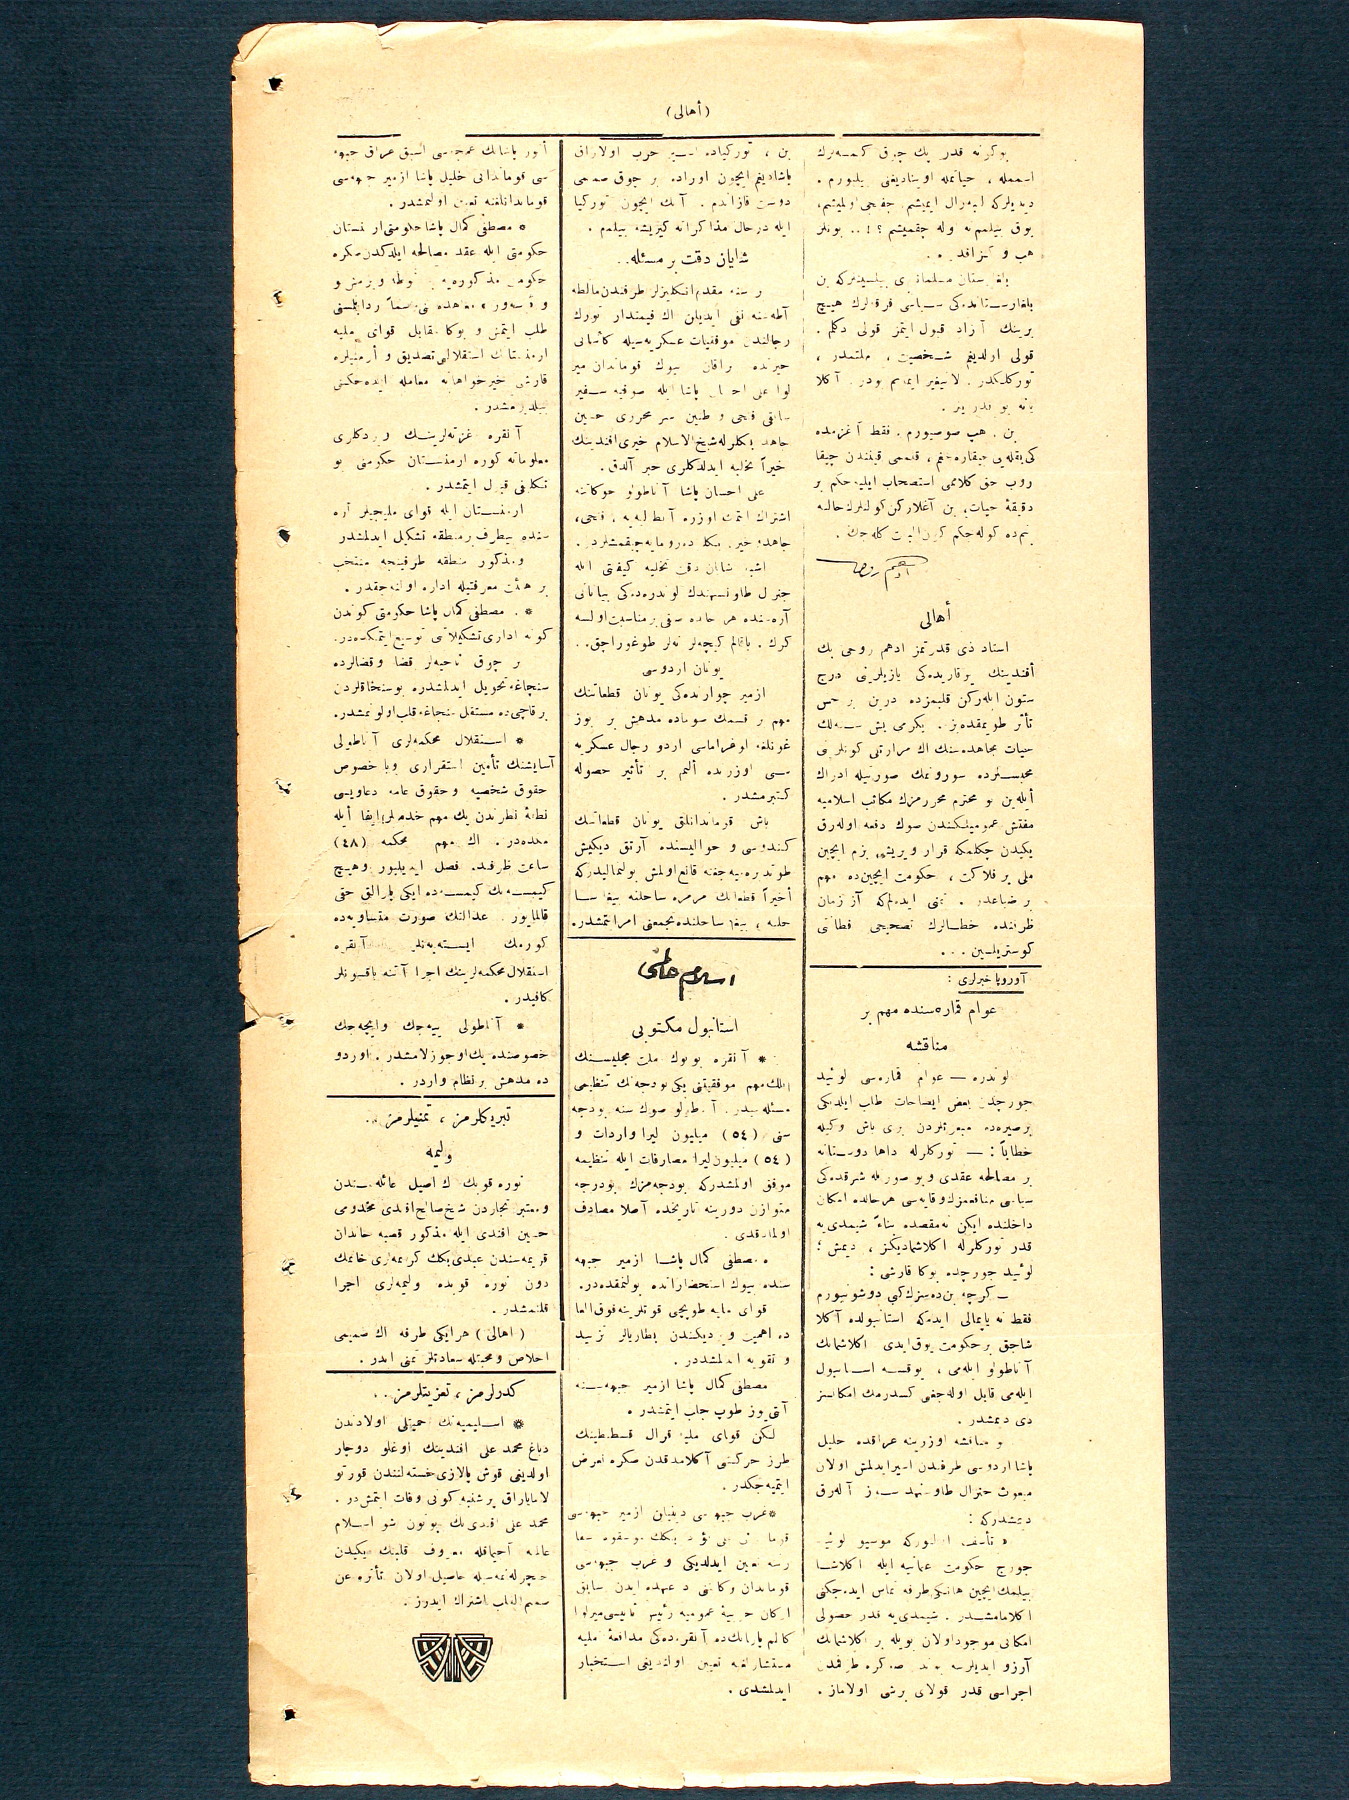 (أهالی)
بوكونه قدر پك چوق كیمسه‌لرك
اسممله ، حیاتمله اوینادیغنی بیلیورم .
دیدیلركه لیبرال ایمیشم، چفجی اولمیشم،
یوق بیلمم‌نه وله چقمیشم؟ !.. بونلر
هپ و كزافدر . .
بلغارستان مسلمانلری بیلسینلركه بن
بلغارستانده‌كی سیاسی فرقه‌لرك هیچ
برینك آزاد قبول ایتمز قولی دكلم .
قولی اولدیغم شخصیت ، ملتمدر ،
توركلكدر .
بن هپ صوصیورم . فقط آغزمده
دقیقهٔ حیات، بن آغلاركن كولنلرك حالنه
بنم‌ده كوله‌جكم كون البت كله‌جك .
أهالی
استاد ذی قدرتمز ادهم روحی بك
أفندینك برقاریده‌كی یازیلرینی درج
ستون ایله‌ركن قلبمزده درین بر حس
تأثر طویمقده‌یز . یكرمی بش سنه‌لك
حیات مجاهده‌سنك اك مرارتلی كونلرینی
محبسلرده سورونمك صورتیله ادراك
أیله‌ین بو محترم محررمزك مكاتب اسلامیه
مفتش عمومیلكندن صوك دفعه اوله‌رق
یكیدن چكلمكه قرار ویریشی بزم ایچین
ملی بر فلاكت ، حكومت ایچین‌ده مهم
بر ضیاعدر . تمنی ایده‌لم‌كه آز زمان
ظرفنده خطالرك تصحیحی قطانتی
كوستریلسین ...
آوروپا خبرلری :
عوام قماره‌سنده مهم بر
مناقشه
لوندره — عوام قماره‌سی لوئید
جورجدن بعض ایضاحات طلب ایلدیكی
بر صیره‌ده مبعوثلردن بری باش وكیله
خطاباً : — توركلرله داها دوستانه
بر مصالحه عقدی و بو صورتله شرقده‌كی
سیاسی منافعمزك وقایه‌سی هر حالده امكان
داخلنده ایكن نه‌مقصده بناءً شیمدی‌یه
قدر توركلرله اكلاشمادیكز ، دیمش ؛
لوئید جورجده بوكا قارشی :
— كرچه بن‌ده سزك كبی دوشونیورم
فقط نه یاپمالی ایدم‌كه استانبولده آكلا
شاجق بر حكومت یوق ایدی اكلاشمانك
آناطولو ایله‌می ، یوقسه استانبول
ایله‌می قابل اوله‌جغی كسدرمك امكانسز
دی دیمشدر .
و مناقشه اوزرینه عراقده خلیل
پاشا اردوسی طرفندن اسیر ایدلمش اولان
مبعوث جنرال طاونسهند سوز آله‌رق
دیمشدركه :
» تأسف اولنوركه موسیو لوئید
جورج حكومت عثمانیه ایله اكلاشا
بیلمك ایچین هانكی طرفه تماس ایده‌جكنی
اكلامامشدر . شیمدی‌یه قدر حصولی
امكانی موجود اولان بویله بر اكلاشمانك
آرزو ایدیلرسه بوندن صوكره طرفمدن
اجراسی قدر قولای برشی اولاماز .
بن ، توركیاده اسیر حرب اولاراق
یاشادیغم ایچون اوراده بر چوق صمیمی
دوست قازاندم . آنك ایچون توركیا
ایله درحال مذاكراته كیریشه بیلم .
شایان دقت بر مسئله..
بر سنه مقدم انكلیزلر طرفندن مالطه
آطه‌سنه نفی ایدیلن اك قیمتدار تورك
رجالندن موفقیات عسكریه‌سیله كائناتی
حیرتده براقان بیوك قوماندان میر
لوا علی احسان پاشا ایله صوفیه سفیر
سابقی فتحی و طنین سر محرری حسین
جاهد بكلرله شیخ‌الاسلام خیری افندینك
اخیراً تخلیه ایدلدكلری خبر آلدق .
علی احسان پاشا آناطولو حركاتنه
اشتراك اتمك اوزره
جاهد و خیری بكلرده رومایه چیقمشلردر.
اشبو شایان دقت تخلیه كیفیتی ایله
جنرال طاونسهندك لوندره‌ده‌كی بیاناتی
آره‌سنده هر حالده صیقی بر مناسبت اولسه
كرك . باقالم كیجه‌لر نه‌لر طوغوراجق..
یونان اردوسی
ازمیر جوارنده‌كی یونان قطعاتنك
مهم بر قسمك سوماده مدهش بر بوز
غونلغه اوغراماسی اردو رجال عسكریه
سی اوزرنده ألیم بر تأثیر حصوله
كتیرمشدر .
باش قوماندانلق یونان قطعاتنك
كندوسی و حوالیسنده آرتق دیكیش
طوتدیره‌میه‌جغنه قانع اولمش بولنمالیدركه
أخیراً قطعاتك مرمره ساحلنه
ساحلنده تجمعنی امر اتمشدر.
اسلام عالمی
استانبول مكتوبی
* آنقره بویوك ملت مجلیسنك
اك مهم موفقیتی یكی بودجه‌نك تنظیمی
مسئله‌سیدر. آناطولو صوك سنه بودجه
سنی (٥٤) میلیون لیرا واردات و
(٥٤) میلیون لیرا مصارفات ایله تنظیمه
موفق اولمشدركه بودجه‌مزك بودرجه
متوازن دورینه تاریخده آصلا مصادف
اولمازدی .
* مصطفی كمال پاشا ازمیر جبهه
سنده بیوك استحضاراتده بولنمقده‌در.
قوای ملیه طوپچی قوتلرینه فوق‌العا
ده اهمیت ویردیكندن بطاریالر تزیید
و تقویه ایدلمشدر .
مصطفی كمال پاشا ازمیر جبهه‌سنه
آلتی یوز طوپ جلب ایتمشدر .
لكن قوای ملیه قرال قسطنطینك
طرز حركتنی آكلامدقدن صكره تعرض
ایتمیه‌جكدر .
* غرب جبهه‌سی دینیلن ازمیر جبهه‌سی
رته تعیین ایدلدیكی و غرب جبهه‌سی
قوماندان وكالتنی درعهده ایدن سابق
اركان حربیهٔ عمومیه رئیس ثانیسی میرلوا
كاظم پاشانك‌ده آنقره‌ده‌كی مدافعهٔ ملیه
مستشارلغنه تعیین اولندیغی استخبار
ایدلمشدی .
أنور پاشانك عمجه‌سی اسبق عراق جبهه
سی قوماندانی خلیل پاشا ازمیر جبهه‌سی
قوماندانلغنه تعیین اولنمشدر .
* مصطفی كمال پاشا حكومتی ارمنستان
حكومتی ایله عقد مصالحه ایلدكدن صكره
طلب ایتمش و بوكا مقابل قوای ملیه
ارمنستانك استقلالنی تصدیق و أرمنیلره
قارشی خیرخواهانه معامله ایده‌جكنی
بیلدیرمشدر .
آنقره غزته‌لرینك ویردكلری
معلوماته كوره ارمنستان حكومتی بو
تكلیفی قبول ایتمشدر .
ارمنستان ایله قوای ملیجیلر آره
سنده بیطرف بر منطقه تشكیل ایدلمشدر
ومذكور منطقه طرفینجه منتخب
بر هیئت معرفتیله اداره اولنه‌جقدر .
* . مصطفی كمال پاشا حكومتی كوندن
كونه اداری تشكیلاتنی توسیع ایتمكده‌در.
بر چوق ناحیه‌لر قضا و قضالرده
سنجاغه تحویل ایدلمشدر، بوسنجاقلردن
بر قاچی‌ده مستقل سنجاغه قلب اولونمشدر.
* استقلال محكمه‌لری آناطولی
آسایشنك تأمین استقراری و بالخصوص
حقوق شخصیه و حقوق عامه دعاویسی
نقطهٔ نظرندن پك مهم خدمه‌لر ایفا أیله
مكده‌در. اك مهم محكمه (٤٨)
ساعت ظرفنده فصل ایدیلیور وهیچ
كیمسه‌نك كیمسه‌ده ایكی پارالق حقی
قالمایور . عدالتك صورت متساویه‌ده
كورمك ایسته‌یه‌نلر آنقره
استقلال محكمه‌لرینك اجراآتنه باقسونلر
كافیدر .
* آناطولی ییه‌جك وایچه‌جك
خصوصنده پك اوجوزلامشدر . اوردو
ده مدهش بر نظام واردر .
تبریكلرمز ، تمنیلرمز ..
ولیمه
نوره قوبك اك اصیل عائله‌سندن
و معتبر تجاردن شیخ صالح افندی مخدومی
حسین افندی ایله مذكور قصبه خاندان
قدیمه‌سندن عبدی بكك كریمه‌لری خانمك
دون نوره قوبده ولیمه‌لری اجرا
قلنمشدر .
( اهالی ) هر ایكی طرفه اك صمیمی
اخلاص و محبتله سعادتلر تمنی ایدر .
كدرلرمز ، تعزیتلرمز . .
* اسلیمیه‌نك حمیتلی اولادندن
دباغ محمد علی افندینك اوغلو دوچار
اولدیغی قوش پالازی خسته‌لغندن قورتو
لامایاراق پرشنبه كونی وفات ایتمش‌در .
محمد علی افندی‌نك بوتون شو اسلام
عالمنه آجیماقله معروف قلبنك یكیدن
جریحه‌لنمه‌سیله حاصل اولان تأثره عن
صمیم القلب اشتراك ایدرز .